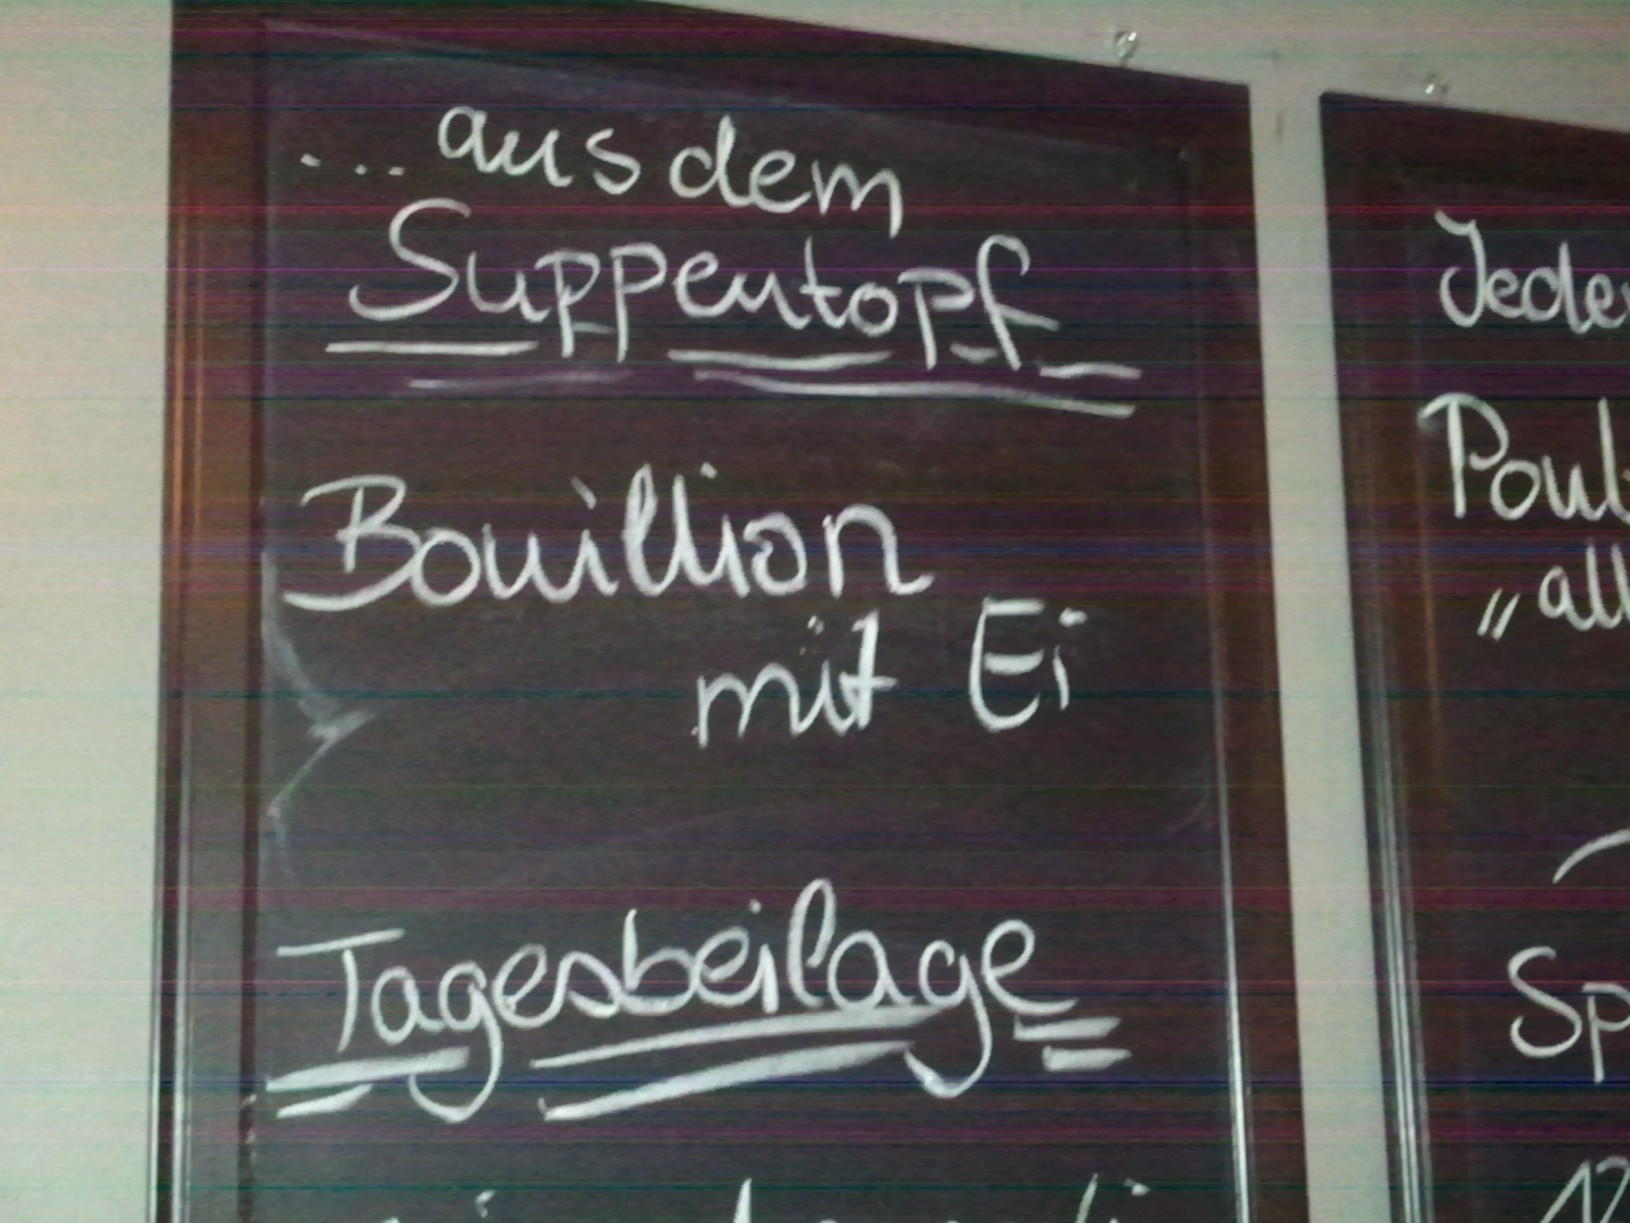 ... aus dem
Suppentopf
Bouillion
mit Ei
Tagesbeilage
Sp